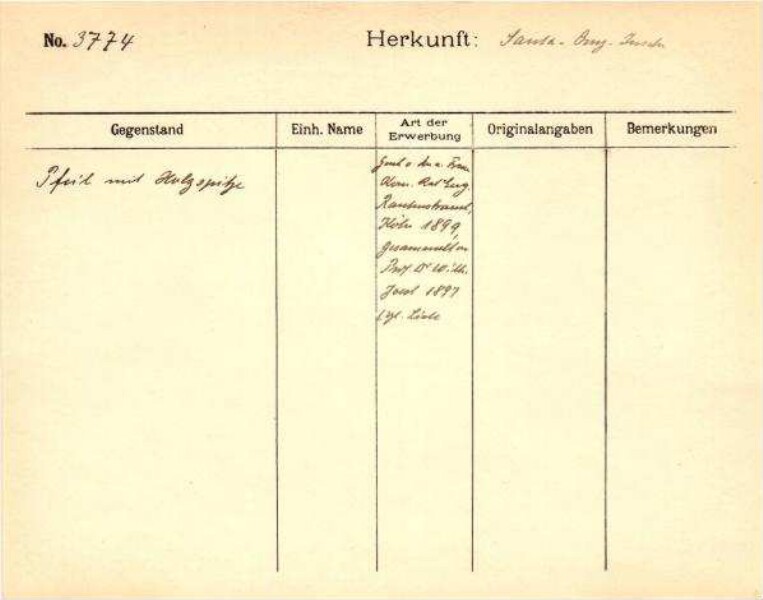 No. 3774 Herkunft: Santa-Cruz-Inseln
Gegenstand Einh. Name Art der Erwerbung Originalangaben Bemerkungen
Pfeil mit Holzspitze
Frau
Rautenstrauch,
Köln 1899,
gesammelt von
Prof Dr Wilh.
Joest 1897
vgl. Liste